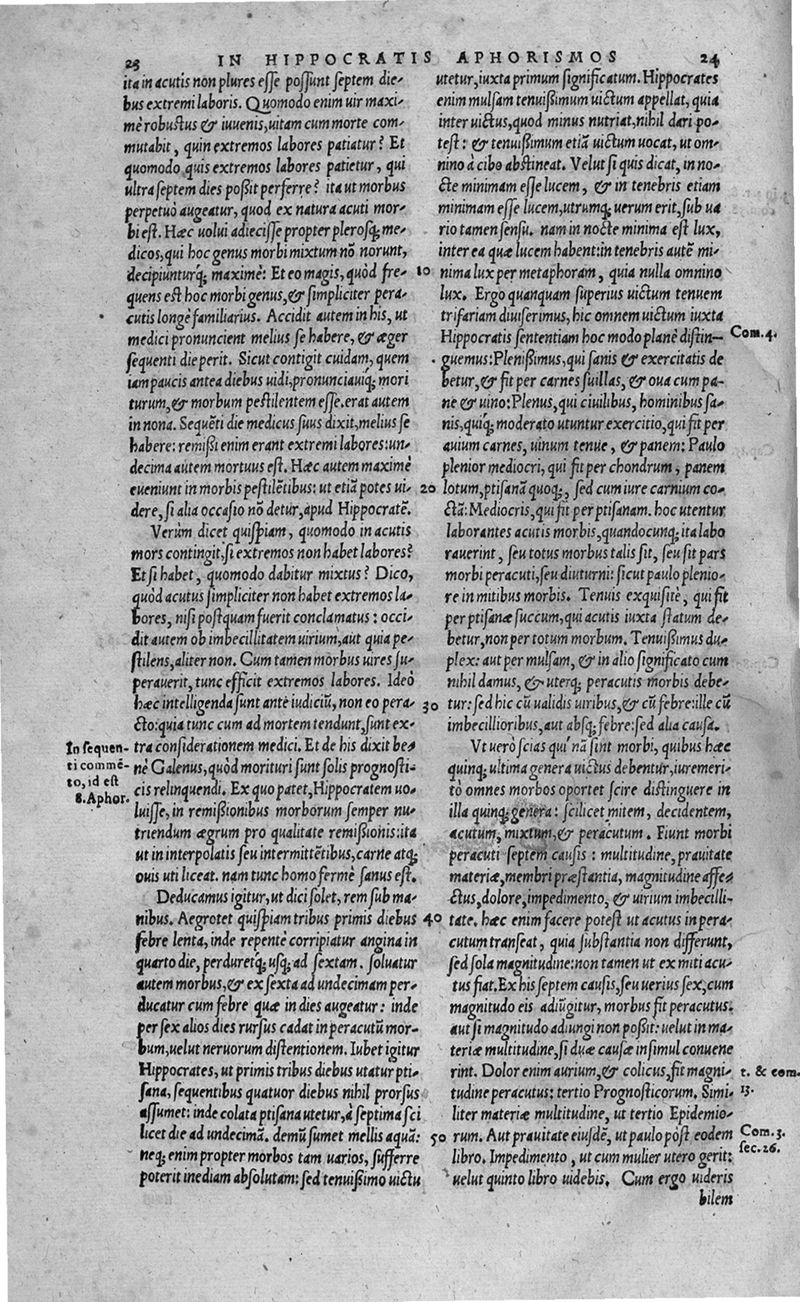 23 IN HIPPOCRATIS APHORISMOS 24
ita in acutis non plures esse possunt septem die-
bus extremi laboris. Quomodo enim uir maxi-
mè robustus & iuuenis, uitam cum morte com-
mutabit, quin extremos labores patiatur? Et
quomodo quis extremos labores patietur, qui
ultra septem dies poßit perferre? ita ut morbus
perpetuò augeatur, quod ex natura acuti mor-
bi est. Hæc uolui adiecisse propter plerosq; me-
dicos, qui hoc genus morbi mixtum nõ norunt,
decipiunturq; maximè: Et eo magis, quòd fre-
quens est hoc morbi genus, & simpliciter pera-
cutis longè familiarius. Accidit autem in his, ut
medici pronuncient melius se habere, & æger
sequenti die perit. Sicut contigit cuidam, quem
iam paucis antea diebus uidi, pronunciauiq; mori
turum, & morbum pestilentem esse. erat autem
in nona. Sequẽti die medicus suus dixit, melius se
habere: remißi enim erant extremi labores: un-
decima autem mortuus est. Hæc autem maximè
eueniunt in morbis pestilẽtibus: ut etiã potes ui-
dere, si alia occasio nõ detur, apud Hippocratẽ.
Verùm dicet quispiam, quomodo in acutis
mors contingit, si extremos non habet labores?
Et si habet, quomodo dabitur mixtus? Dico,
quòd acutus simpliciter non habet extremos la-
bores, nisi postquam fuerit conclamatus: occi-
dit autem ob imbecillitatem uirium, aut quia pe-
stilens, aliter non. Cum tamen morbus uires su-
perauerit, tunc efficit extremos labores. Ideò
hæc intelligenda sunt antè iudiciũ, non eo pera-
cto: quia tunc cum ad mortem tendunt, sunt ex-
tra considerationem medici. Et de his dixit be-
nè Galenus, quòd morituri sunt solis prognosti-
cis relinquendi. Ex quo patet, Hippocratem uo-
luisse, in remißionibus morborum semper nu-
triendum ægrum pro qualitate remißionis: ita
ut in interpolatis seu intermittẽtibus, carne atq;
ouis uti liceat. nam tunc homo fermè sanus est.
Deducamus igitur, ut dici solet, rem sub ma-
nibus. Aegrotet quispiam tribus primis diebus
febre lenta, inde repentè corripiatur angina in
quarto die, perduretq; usq; ad sextam. soluatur
autem morbus, & ex sexta ad undecimam per-
ducatur cum febre quæ in dies augeatur: inde
per sex alios dies rursus cadat in peracutũ mor-
bum, uelut neruorum distentionem. Iubet igitur
Hippocrates, ut primis tribus diebus utatur pti-
sana, sequentibus quatuor diebus nihil prorsus
assumet: inde colata ptisana utetur, à septima sci
licet die ad undecimã. demũ sumet mellis aquã:
neq; enim propter morbos tam uarios, sufferre
poterit inediam absolutam: sed tenuißimo uictu
In sequen-
ti commẽ-
to, id est
8. Aphor.
utetur, iuxta primum significatum. Hippocrates
enim mulsam tenuißimum uictum appellat, quia
inter uictus, quod minus nutriat, nihil dari po-
test: & tenuißimum etiã uictum uocat, ut om-
nino à cibo abstineat. Velut si quis dicat, in no-
cte minimam esse lucem, & in tenebris etiam
minimam esse lucem, utrumq; uerum erit, sub ua
rio tamen sensu. nam in nocte minima est lux,
inter ea quæ lucem habent: in tenebris autẽ mi-
10 nima lux per metaphoram, quia nulla omnino
lux. Ergo quanquam superius uictum tenuem
trifariam diuiserimus, hic omnem uictum iuxta
Hippocratis sententiam hoc modo planè distin-
guemus: Plenißimus, qui sanis & exercitatis de
betur, & fit per carnes suillas, & oua cum pa-
ne & uino: Plenus, qui ciuilibus, hominibus sa-
nis, quiq; moderato utuntur exercitio, qui fit per
auium carnes, uinum tenue, & panem: Paulo
plenior mediocri, qui fit per chondrum, panem
20 lotum, ptisanã quoq;, sed cum iure carnium co-
ctã: Mediocris, qui fit per ptisanam. hoc utentur
laborantes acutis morbis, quandocunq; ita labo
rauerint, seu totus morbus talis sit, seu sit pars
morbi peracuti, seu diuturni: sicut paulo plenio-
re in mitibus morbis. Tenuis exquisitè, qui fit
per ptisanæ succum, qui acutis iuxta statum de-
betur, non per totum morbum. Tenuißimus du-
plex: aut per mulsam, & in alio significato cum
nihil damus, & uterq; peracutis morbis debe-
30 tur: sed hic cũ ualidis uiribus, & cũ febre: ille cũ
imbecillioribus, aut absq; febre: sed alia causa.
Vt uerò scias qui nã sint morbi, quibus hæc
quinq; ultima genera uictus debentur, iure meri-
tò omnes morbos oportet scire distinguere in
illa quinq; genera: scilicet mitem, decidentem,
acutum, mixtum, & peracutum. Fiunt morbi
peracuti septem causis: multitudine, prauitate
materiæ, membri præstantia, magnitudine affe-
ctus, dolore, impedimento, & uirium imbecilli-
40 tate. hæc enim facere potest ut acutus in pera-
cutum transeat, quia substantia non differunt,
sed sola magnitudine: non tamen ut ex miti acu-
tus fiat. Ex his septem causis, seu uerius sex, cum
magnitudo eis adiũgitur, morbus fit peracutus.
aut si magnitudo adiungi non poßit: uelut in ma-
teriæ multitudine, si duæ causæ in simul conuene
rint. Dolor enim aurium, & colicus, fit magni-
tudine peracutus: tertio Prognosticorum. Simi-
liter materiæ multitudine, ut tertio Epidemio-
50 rum. Aut prauitate eiusdẽ, ut paulo pòst eodem
libro. Impedimento, ut cum mulier utero gerit:
uelut quinto libro uidebis. Cum ergo uideris
bilem
Com. 4.
t. & com.
13.
Com. 3.
sec. 26.